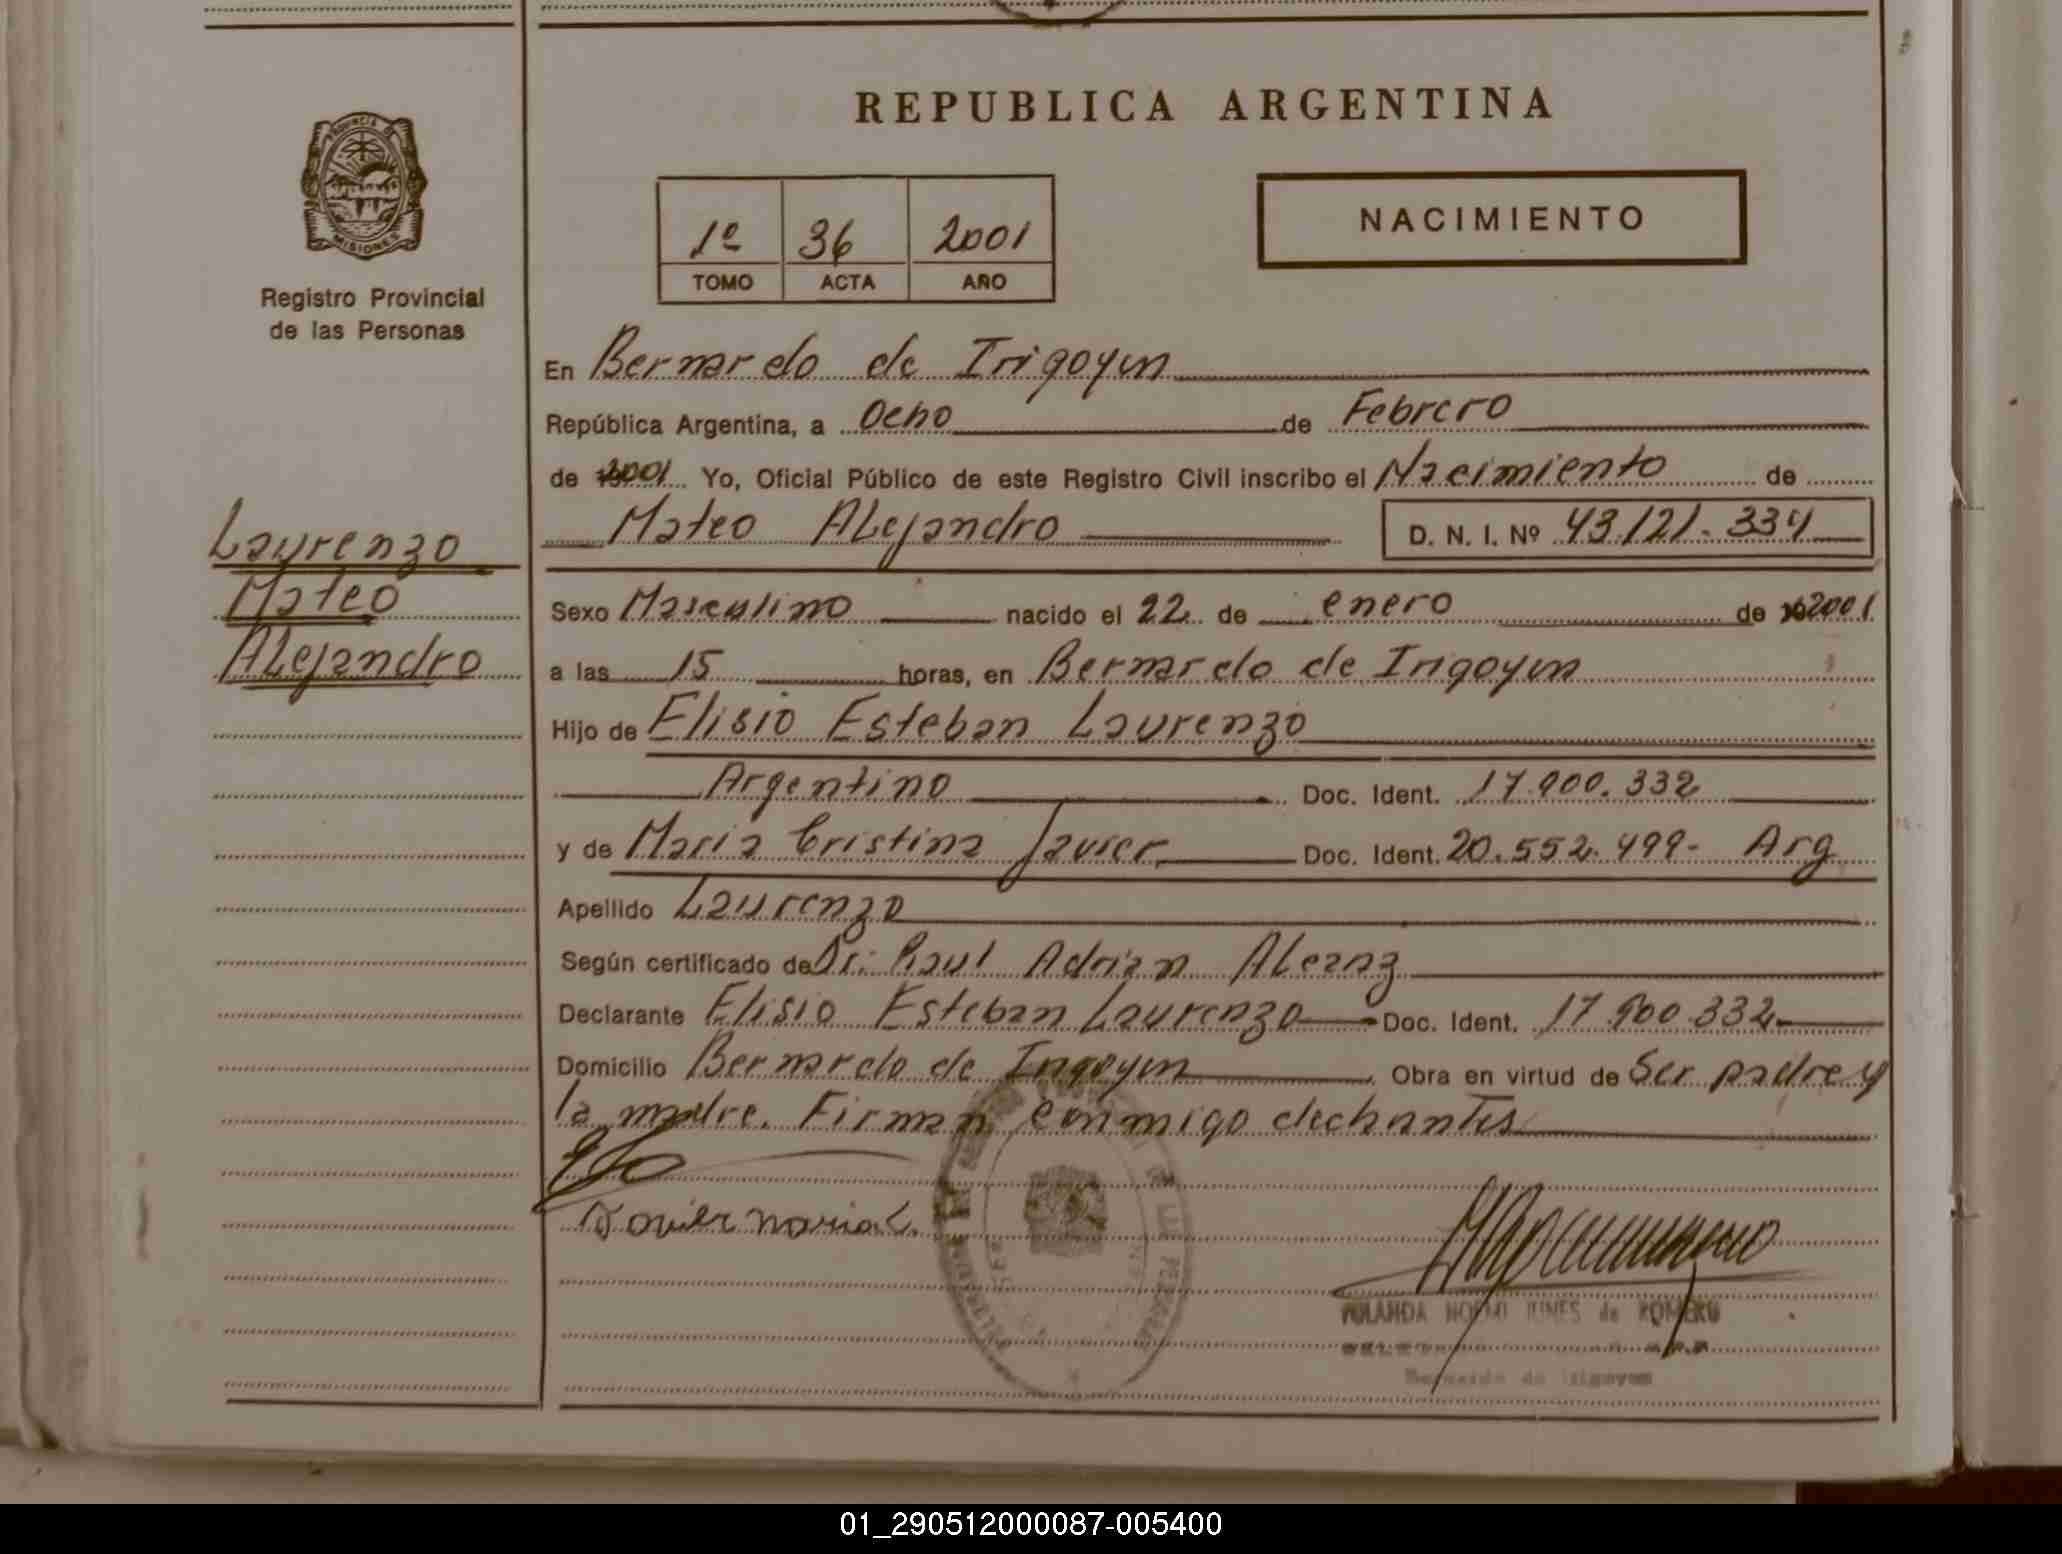 REPUBLICA ARGENTINA
PROVINCIA DE
MISIONES
Registro Provincial
de las Personas
1º 36 2001
TOMO ACTA AÑO
NACIMIENTO
En Bernardo de Irigoyen
República Argentina, a Ocho de Febrero
de 2001 Yo, Oficial Público de este Registro Civil inscribo el Nacimiento de
Mateo Alejandro D. N. I. Nº 43.121.334
Laurenzo
Mateo
Alejandro
Sexo Masculino nacido el 22 de enero de 2001
a las 15 horas, en Bernardo de Irigoyen
Hijo de Elisio Esteban Laurenzo
Argentino Doc. Ident. 17.900.332
y de Maria Cristina Javier Doc. Ident. 20.552.499- Arg
Apellido Laurenzo
Según certificado de Dr. Raul Adrian
Declarante Elisio Esteban Laurenzo Doc. Ident. 17.900.332
Domicilio Bernardo de Irigoyen Obra en virtud de Ser padre y
la madre. Firman conmigo
Javier maria C.
YOLANDA NOEMI de ROMERO
Bernardo de Irigoyen
01_290512000087-005400